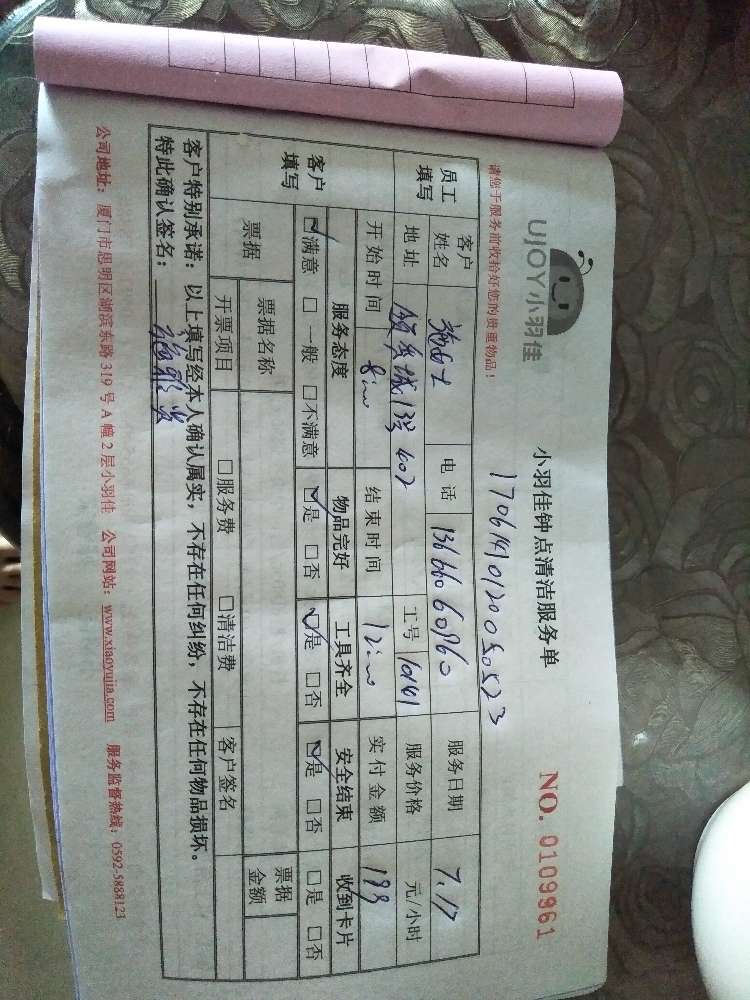 UJOY小羽佳
小羽佳钟点清洁服务单
NO. 0109961
请您于服务前收拾好您的贵重物品！
员工填写 客户姓名 施女士 电话 13666060960 服务日期 7.17
地址 13号602 工号 10161 服务价格 元/小时
开始时间 8:00 结束时间 12:00 实付金额
客户填写 服务态度 物品完好 工具齐全 安全结束 收到卡片
☑满意 □一般 □不满意 ☑是 □否 ☑是 □否 ☑是 □否 □是 □否
票据 票据名称 票据金额
开票项目 □服务费 □清洁费 客户签名
客户特别承诺：以上填写经本人确认属实，不存在任何纠纷，不存在任何物品损坏。
特此确认签名：
公司地址：厦门市思明区湖滨东路319号A幢2层小羽佳 公司网站：www.xiaoyujia.com 服务监督热线：0592-5888123